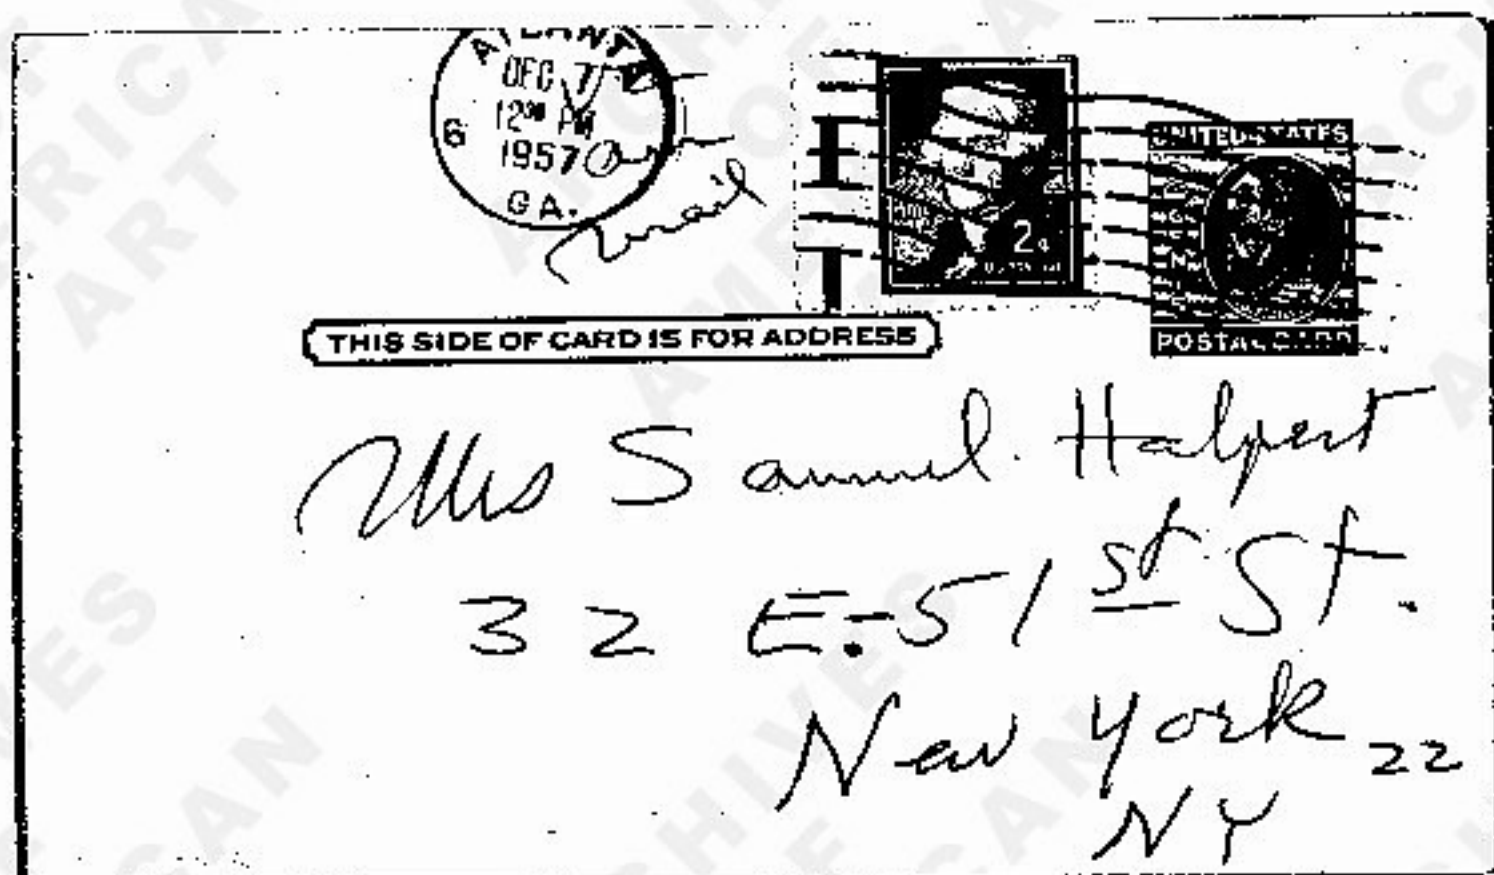 ATLANTA
DEC 7
12 PM
1957
6
GA.
mail
2¢
UNITED STATES
POSTAL CARD
THIS SIDE OF CARD IS FOR ADDRESS
Mrs Samuel Halpert
32 E. 51st St.
New York 22
NY
ARCHIVES
AMERICAN
ART